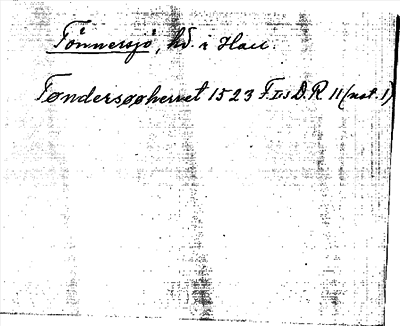 Tönnersjö, hd. i Hall.
Tøndersøøherret 1523 F.IsD.R 11 (not. 1)